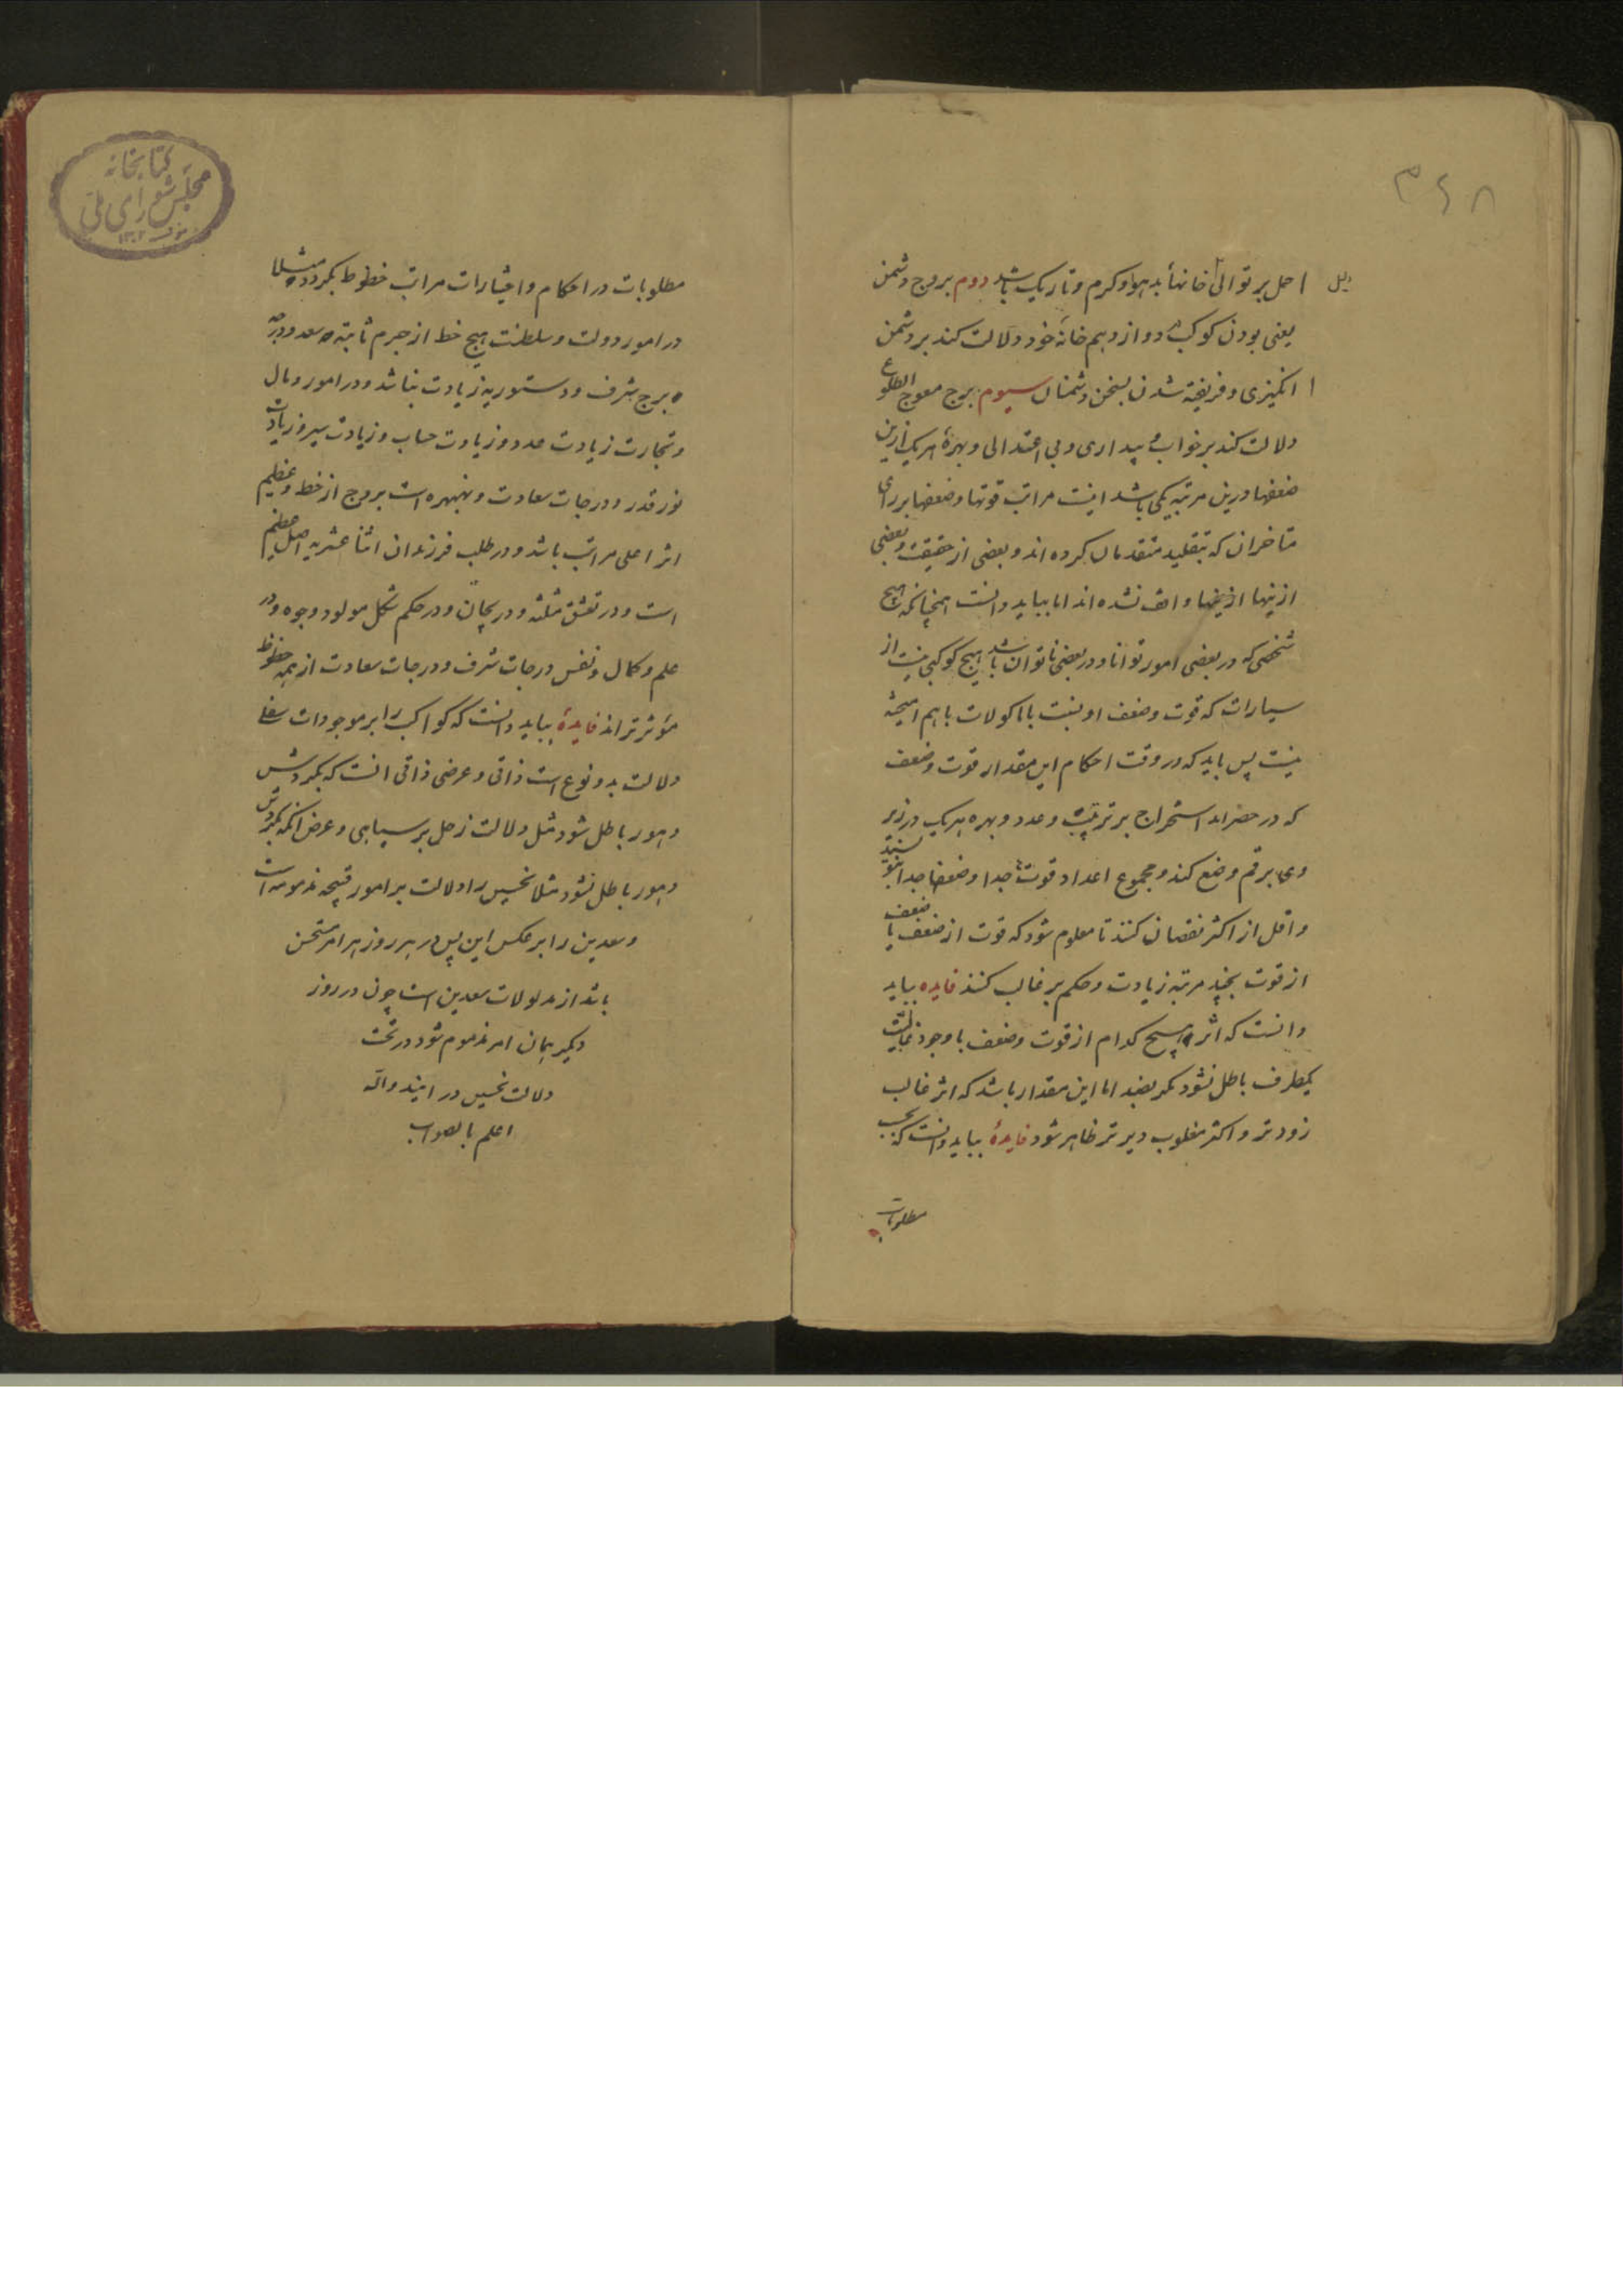 ۳۶۸
دلیل ا حل بر توالی خانهاء بد هوا و کرم و تاریک باشد دوم بروج دشمن
یعنی بودن کوکب دوازدهم خانهٔ خود دلالت کند بر دشمن
ا انکیزی و فریفته شدن بسخن دشمنان سیوم برج معوج الطلوع
دلالت کند بر خواب و بیداری و بی اعتدالی و بهرهٔ هریک ازین
ضعفها درین مرتبه یکی باشد اینست مراتب قوتها و ضعفها بر رای
متاخران که بتقلید متقدمان کرده اند و بعضی از حقیقت و بعضی
ازینها ازینها واقف نشده اند اما بباید دانست همچنانکه هیچ
شخصی که در بعضی امور توانا و در بعضی ناتوان باشد هیچ کوکبی نیست از
سیارات که قوت و ضعف او بنسبت با ماکولات باهم امیخته
نیست پس باید که در وقت احکام این مقدار قوت و ضعف
که در حضراند استخراج بر ترتیب و عدد و بهره هریک در زیر
وی برقم وضع کند و مجموع اعداد قوتها جدا و ضعفها جدا بنویسند
و اقل از اکثر نقصان کنند تا معلوم شود که قوت از ضعف یا ضعف
از قوت بچند مرتبه زیادت و حکم بر غالب کنند فایده بباید
دانست که اثر هیچ کدام از قوت و ضعف با وجود غالبیت
یکطرف باطل نشود مکر بضد اما این مقدار باشد که اثر غالب
زودتر و اکثر مغلوب دیرتر ظاهر شود فایدهٔ بباید دانست که بحسب
مطلوبات
کتابخانه
مجلس شورای ملی
۱۳۰۲
مطلوبات در احکام و اختیارات مراتب خطوط بکردد مثلا
در امور دولت و سلطنت هیچ خط از جرم ثابته سعد و درجه
برج شرف و دستوریه زیادت نباشد و در امور و مال
و تجارت زیادت عدد و زیادت حساب و زیادت سیر و زیادت
نور قدر و درجات سعادت و بنهبهره است بروج از خط و عظیم
اثر اعلی مراتب باشد و در طلب فرزندان اثنا عشریه اصل عظیم
است و در تعشق مثلثه و دریجان و در حکم شکل مولود وجوه و در
علم و کمال و نفس درجات شرف و درجات سعادت از همه حظوظ
مؤثرتراند فایدهٔ بباید دانست که کواکب را بر موجودات سفلی
دلالت بدو نوع است ذاتی و عرضی ذاتی انست که بکردش
دهور باطل شود مثل دلالت زحل بر سیاهی و عرض انکه بکردش
دهور باطل نشود مثلا نحسین را دلالت بر امور قبیحه مذمومه است
و سعدین را بر عکس این پس در هر روز هر امر مستحسن
باشد از مدلولات سعدین است چون در روز
دیکر همان امر مذموم شود در تحت
دلالت نحسین در ایند والله
اعلم بالصواب